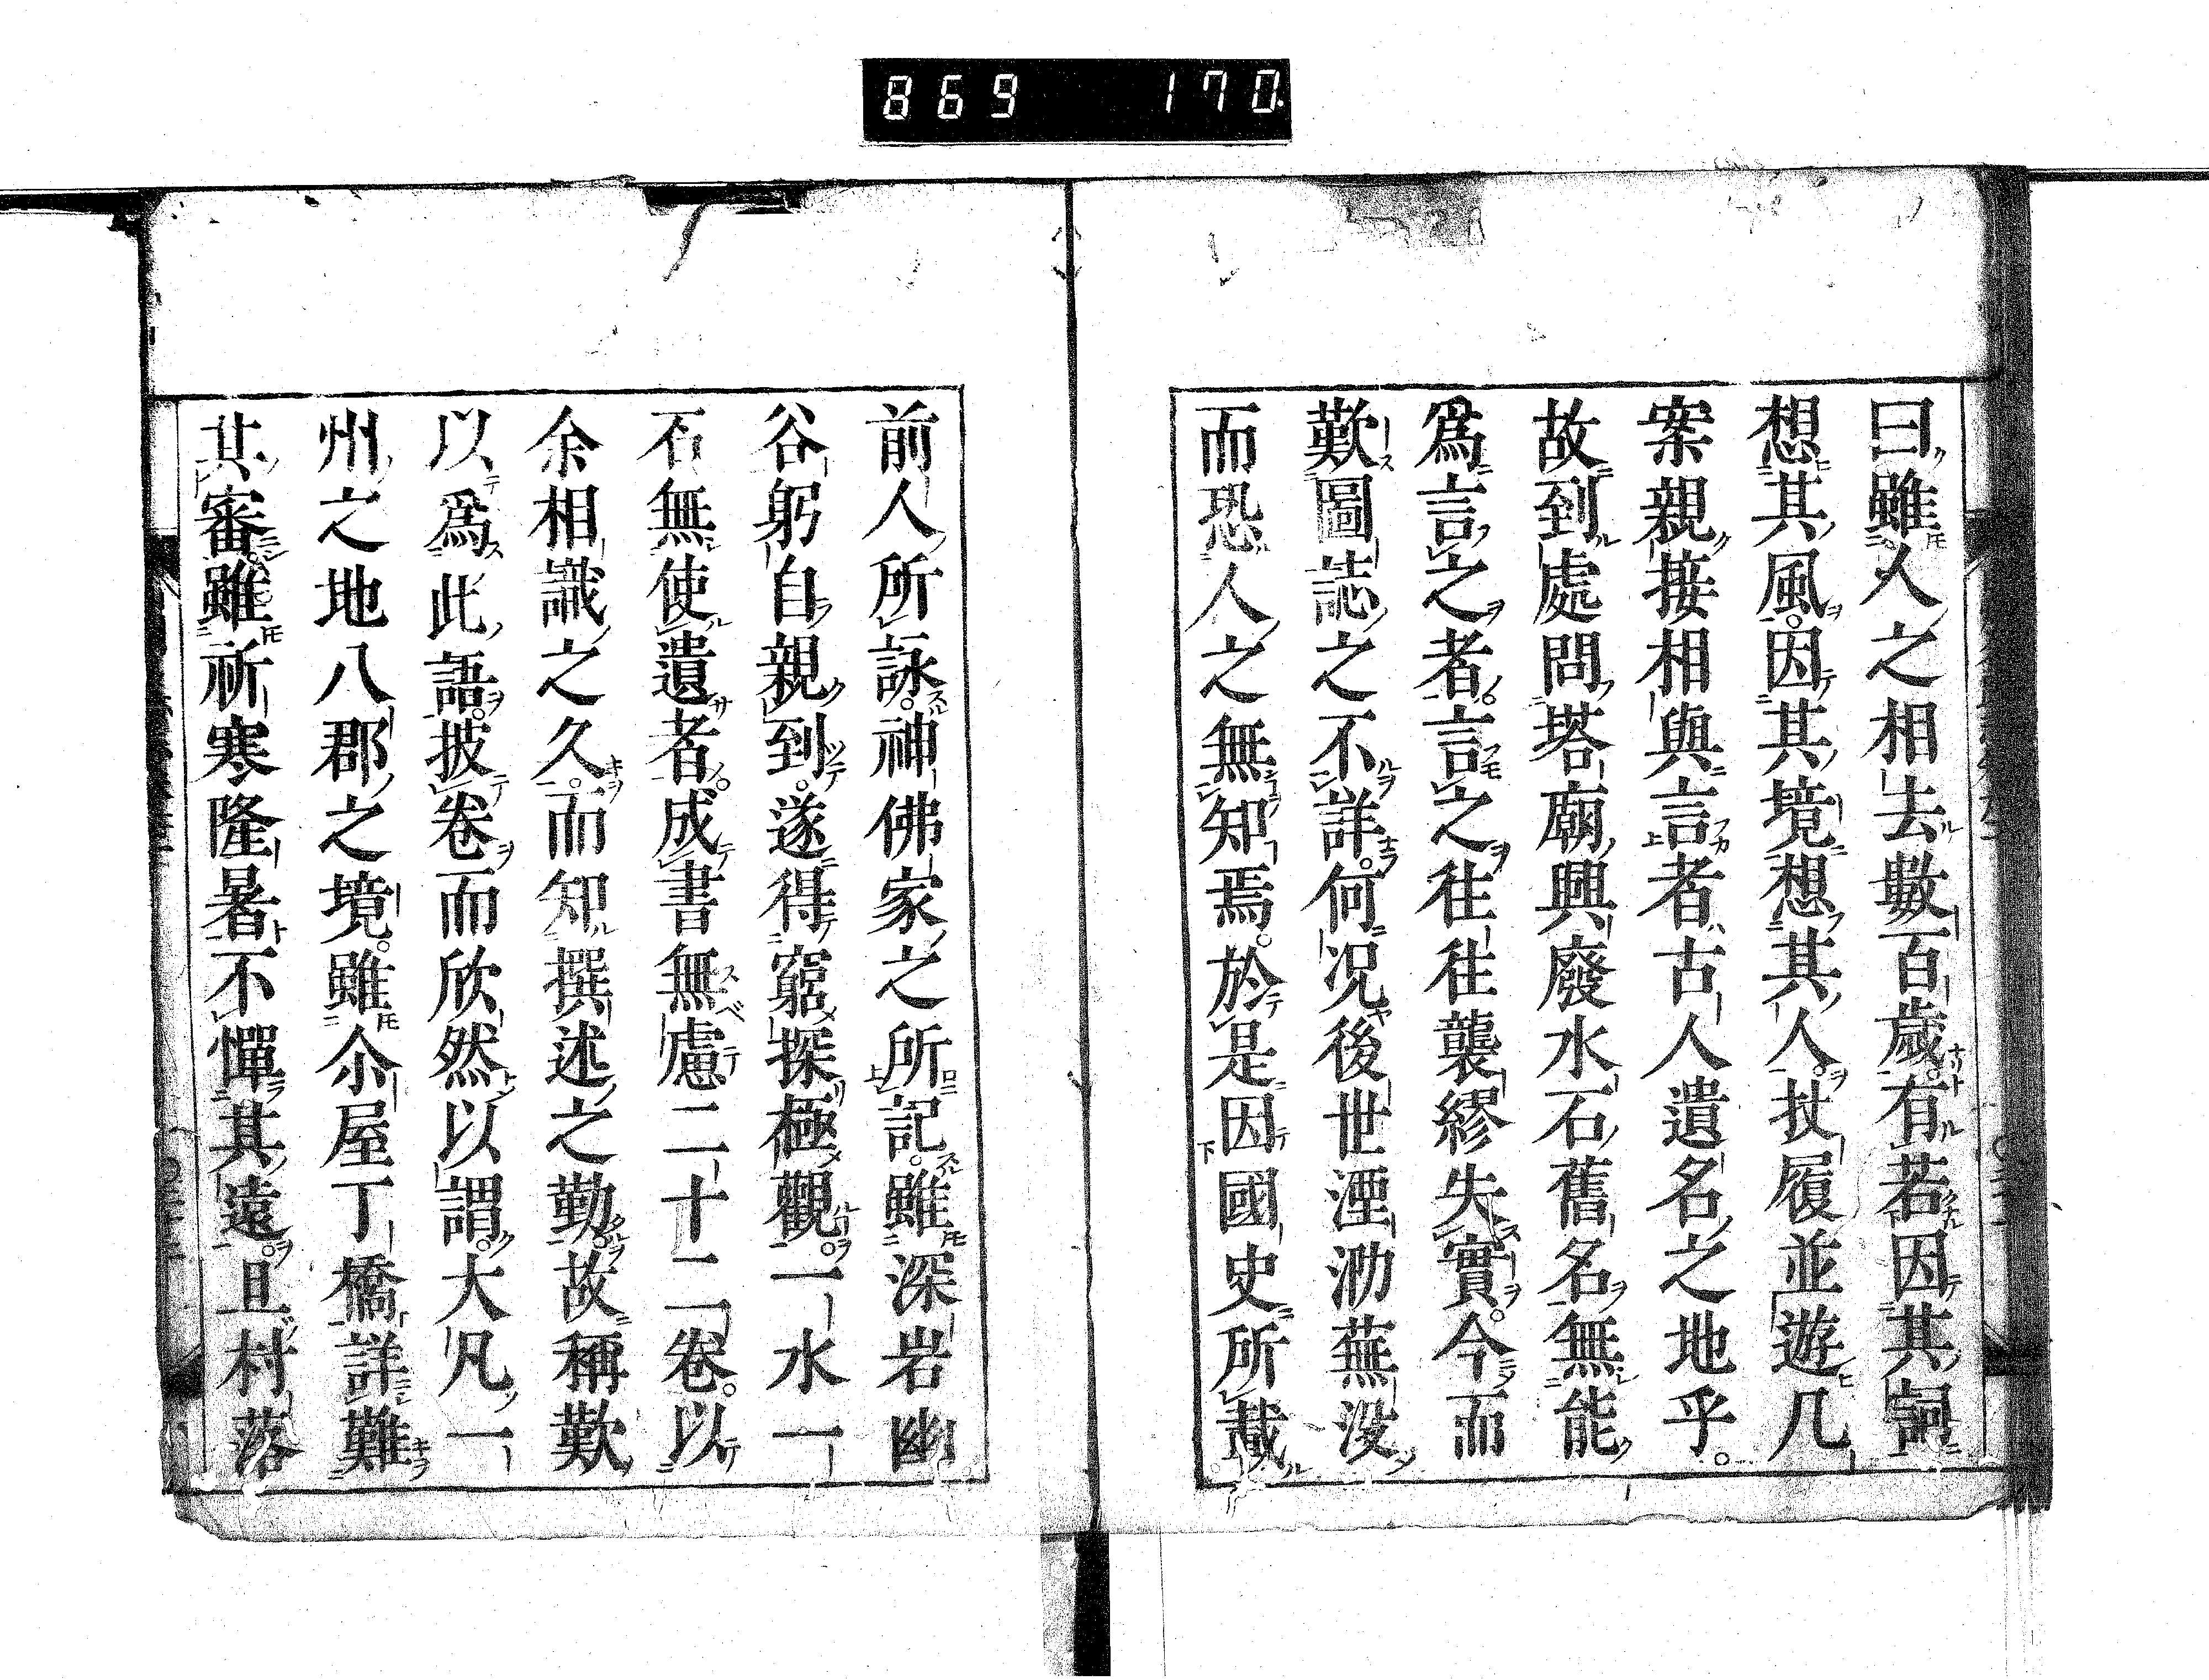 869 170.
曰雖人之相去數百歲有若因其詞
想其風因其境想其人杖履並遊几
案親接相與言者古人遺名之地乎
故到處問塔廟興廢水石舊名無能
爲言之者言之徃徃襲繆失實今而
歎圖誌之不詳何况後世湮泐蕪没
而恐人之無知焉於是因國史所載
前人所詠神佛家之所記雖深岩幽
谷躬自親到遂得窮探極觀一水一
石無使遺者成書無慮二十二卷以
余相識之久而知撰述之勤故稱歎
以爲此語披卷而欣然以謂大凡一
州之地八郡之境雖尒屋丁橋詳難
其審雖祈寒隆暑不憚其遠且村落